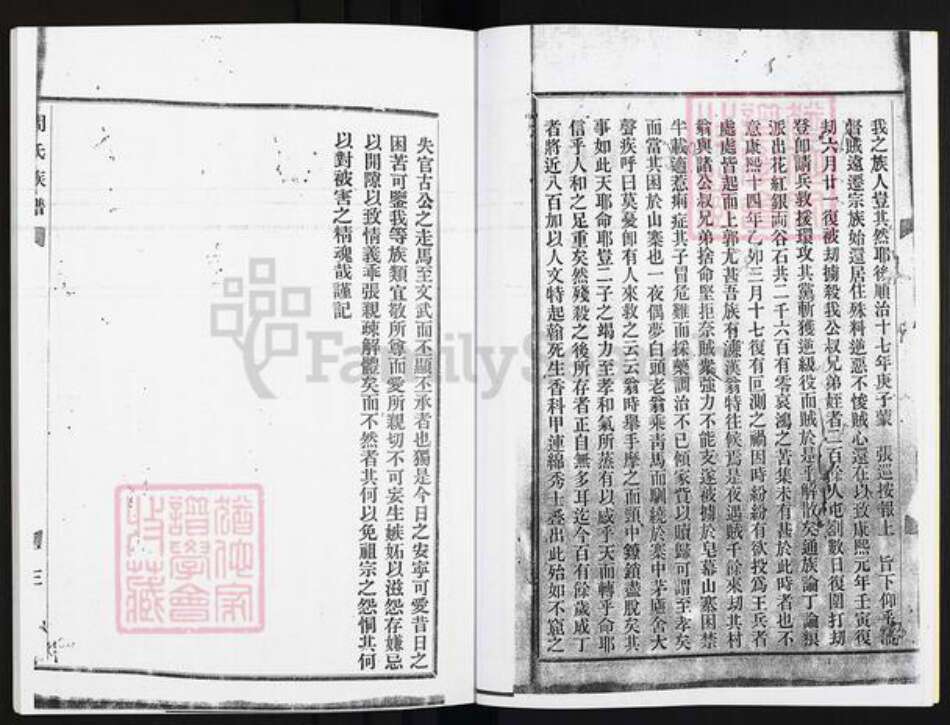 我之族人豈其然耶後順治十七年庚子蒙 張巡按報上 旨下仰平藩
督賊遠遷宗族始還居住殊料逆惡不悛賊心還在以致康熙元年壬寅復
劫六月廿一復被劫擄殺我公叔兄弟姪者二百餘人屯劄數日復圍打劫
登卽請兵救援環攻其黨斬獲逆級役而賊於是乎解散矣通族論丁論糧
派出花紅銀兩谷石共二千六百有零哀鴻之苦集未有甚於此時者也不
意康熙十四年乙卯三月十七復有叵測之禍因時紛紛有欲投為王兵者
處處皆起而上郭尤甚吾族有濂漢翁特往候焉是夜遇賊千餘來刼其村
翁與諸公叔兄弟捨命堅拒奈賊衆強力不能支遂被擄於皂幕山寨困禁
半載適惹痢症其子冒危難而採藥調治不已傾家貲以贖歸可謂至孝矣
而當其困於山寨也一夜偶夢白頭老翁乘靑馬而馴繞於寨中茅廬舍大
聲疾呼曰莫憂卽有人來救之云云翁時舉手摩之而頸中鐐鎖盡脫矣其
事如此天耶命耶豈二子之竭力至孝和氣所蒸有以感乎天而轉乎命耶
信乎人和之足重矣然殘殺之後所存者正自無多耳迄今百有餘歲成丁
者將近八百加以人文特起翰死生香科甲連綿秀士叠出此殆如不窟之
失官古公之走馬至文武而不顯不承者也獨是今日之安寧可愛昔日之
困苦可鑒我等族類宜敬所尊而愛所親切不可妄生嫉妬以滋怨存嫌忌
以開隙以致情義乖張親疎解體矣而不然者其何以免祖宗之怨恫其何
以對被害之精魂哉謹記
周氏族譜
三
FamilySearch